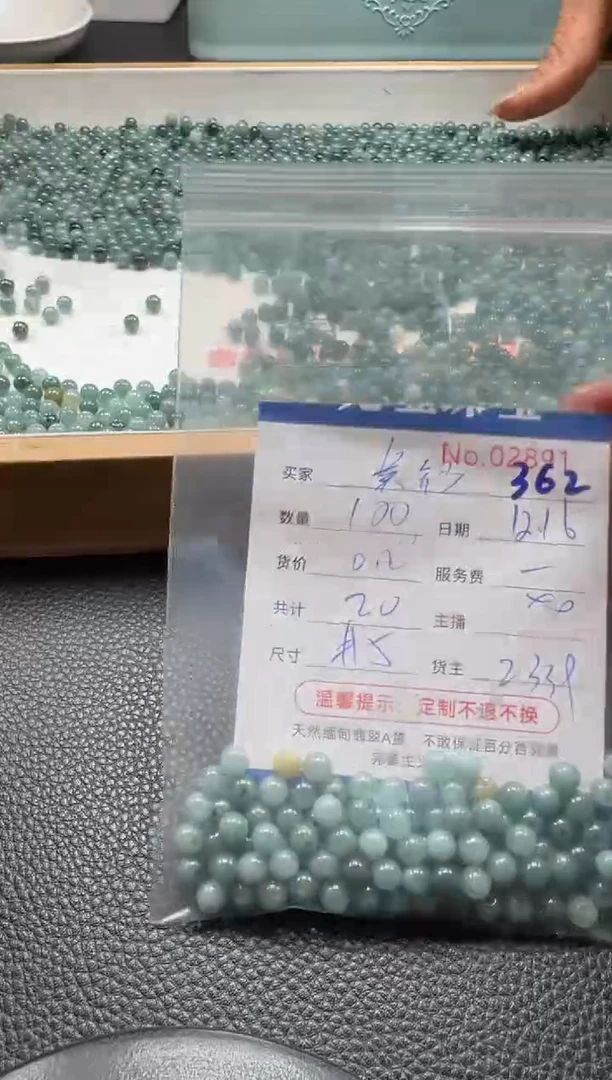 No.02891
买家 362
数量 100 日期 12.16
货价 0.2 服务费 一
共计 20 主播
尺寸 货主 2339
温馨提示: 定制不退不换
天然缅甸翡翠A货 不敢保证百分百完美
完美主义